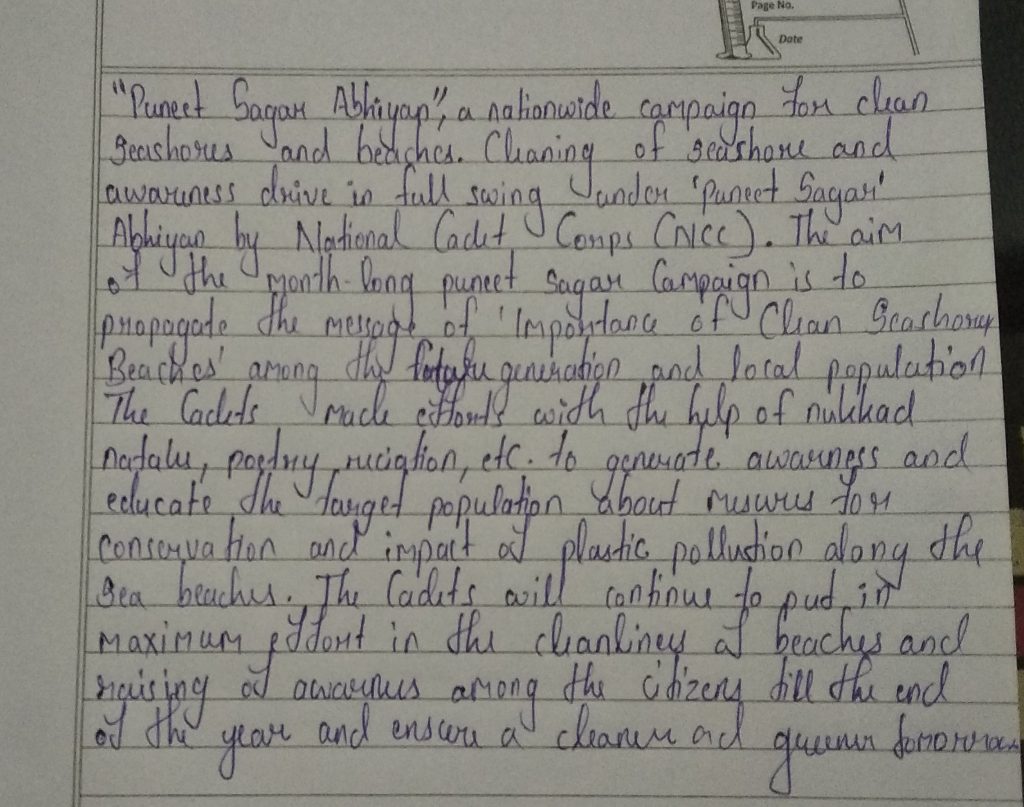 Page No.
Date
"Puneet Sagar Abhiyan", a nationwide campaign for clean
seashores and beaches. Cleaning of seashore and
awarness drive in full swing under 'Puneet Sagar'
Abhiyan by National Cadet Corps (NCC). The aim
of the month-long puneet Sagar Campaign is to
propagate the message of 'Importance of Clean Seashores
Beaches' among the generation and local population
The Cadets made efforts with the help of nukkad
natake, poetry, reciation, etc. to generate awarness and
educate the target population about for
conservation and impact of plastic pollustion along the
sea beaches. The Cadets will continue to put in
maximum effort in the cleanliness of beaches and
raising of awarness among the citizens till the end
of the year and ensure a cleaner ad greener tomorrow